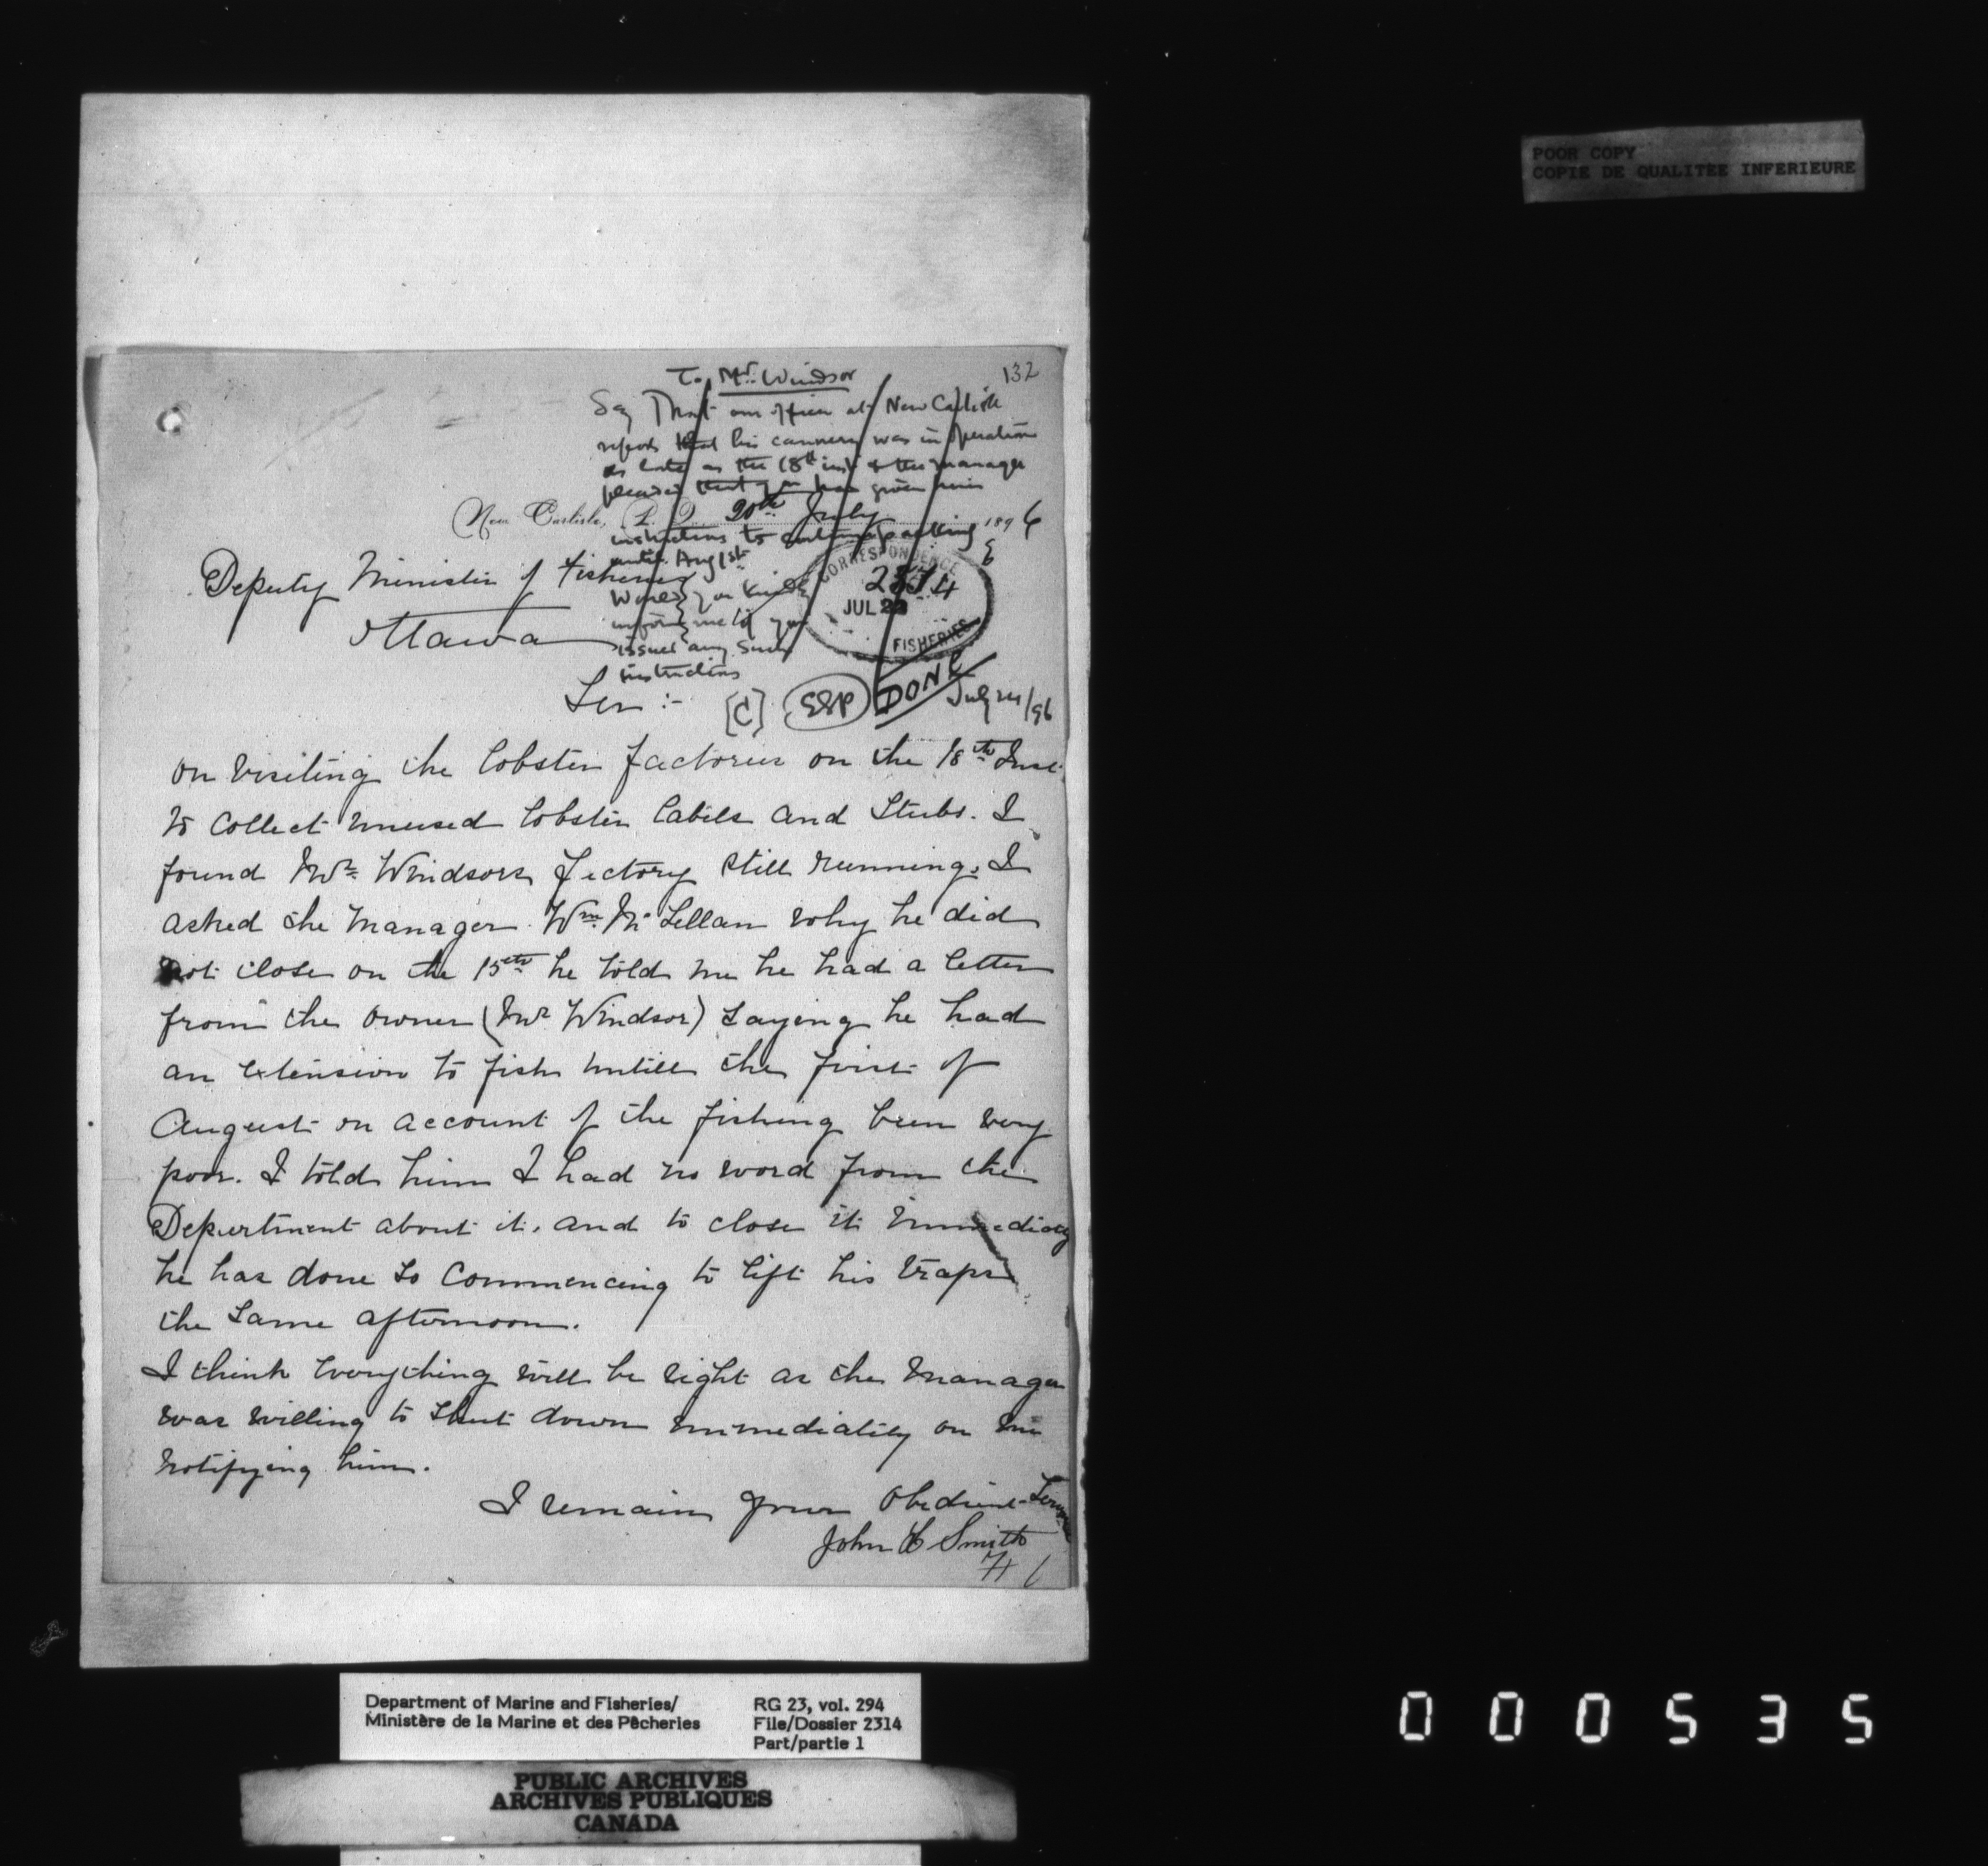 POOR COPY
COPIE DE QUALITEE INFERIEURE
132
To Mr. Windsor
Say That our officer at New Carlisle
reports that his cannery was in operation
as late as the 18th inst & the manager
pleaded that you had given him
instructions to continue packing
until Aug 1st
Would you kindly
inform me if you
issued any such
instructions
New Carlisle, P. Q. 20th July 1896
CORRESPONDENCE
2314
JUL 23
FISHERIES
Deputy Minister of Fisheries
Ottawa
[C]
DONE
July 24/96
Sir :-
On visiting the lobster factories on the 18th Inst
to Collect unused lobster labels and Stubs. I
found Mr. Windsors factory still running. I
asked the Manager Wm. McLellan why he did
not close on the 15th he told me he had a letter
from the owner (Mr Windsor) saying he had
an extension to fish untill the first of
August on account of the fishing been very
poor. I told him I had no word from the
Department about it. and to close it immediatly
he has done so Commencing to lift his traps
the same afternoon.
I think everything will be right as the Manager
was willing to shut down immediatily on me
notifying him.
I remain your Obedient Servant
John H Smith
000535
Department of Marine and Fisheries/
Ministère de la Marine et des Pêcheries
RG 23, vol. 294
File/Dossier 2314
Part/partie 1
PUBLIC ARCHIVES
ARCHIVES PUBLIQUES
CANADA